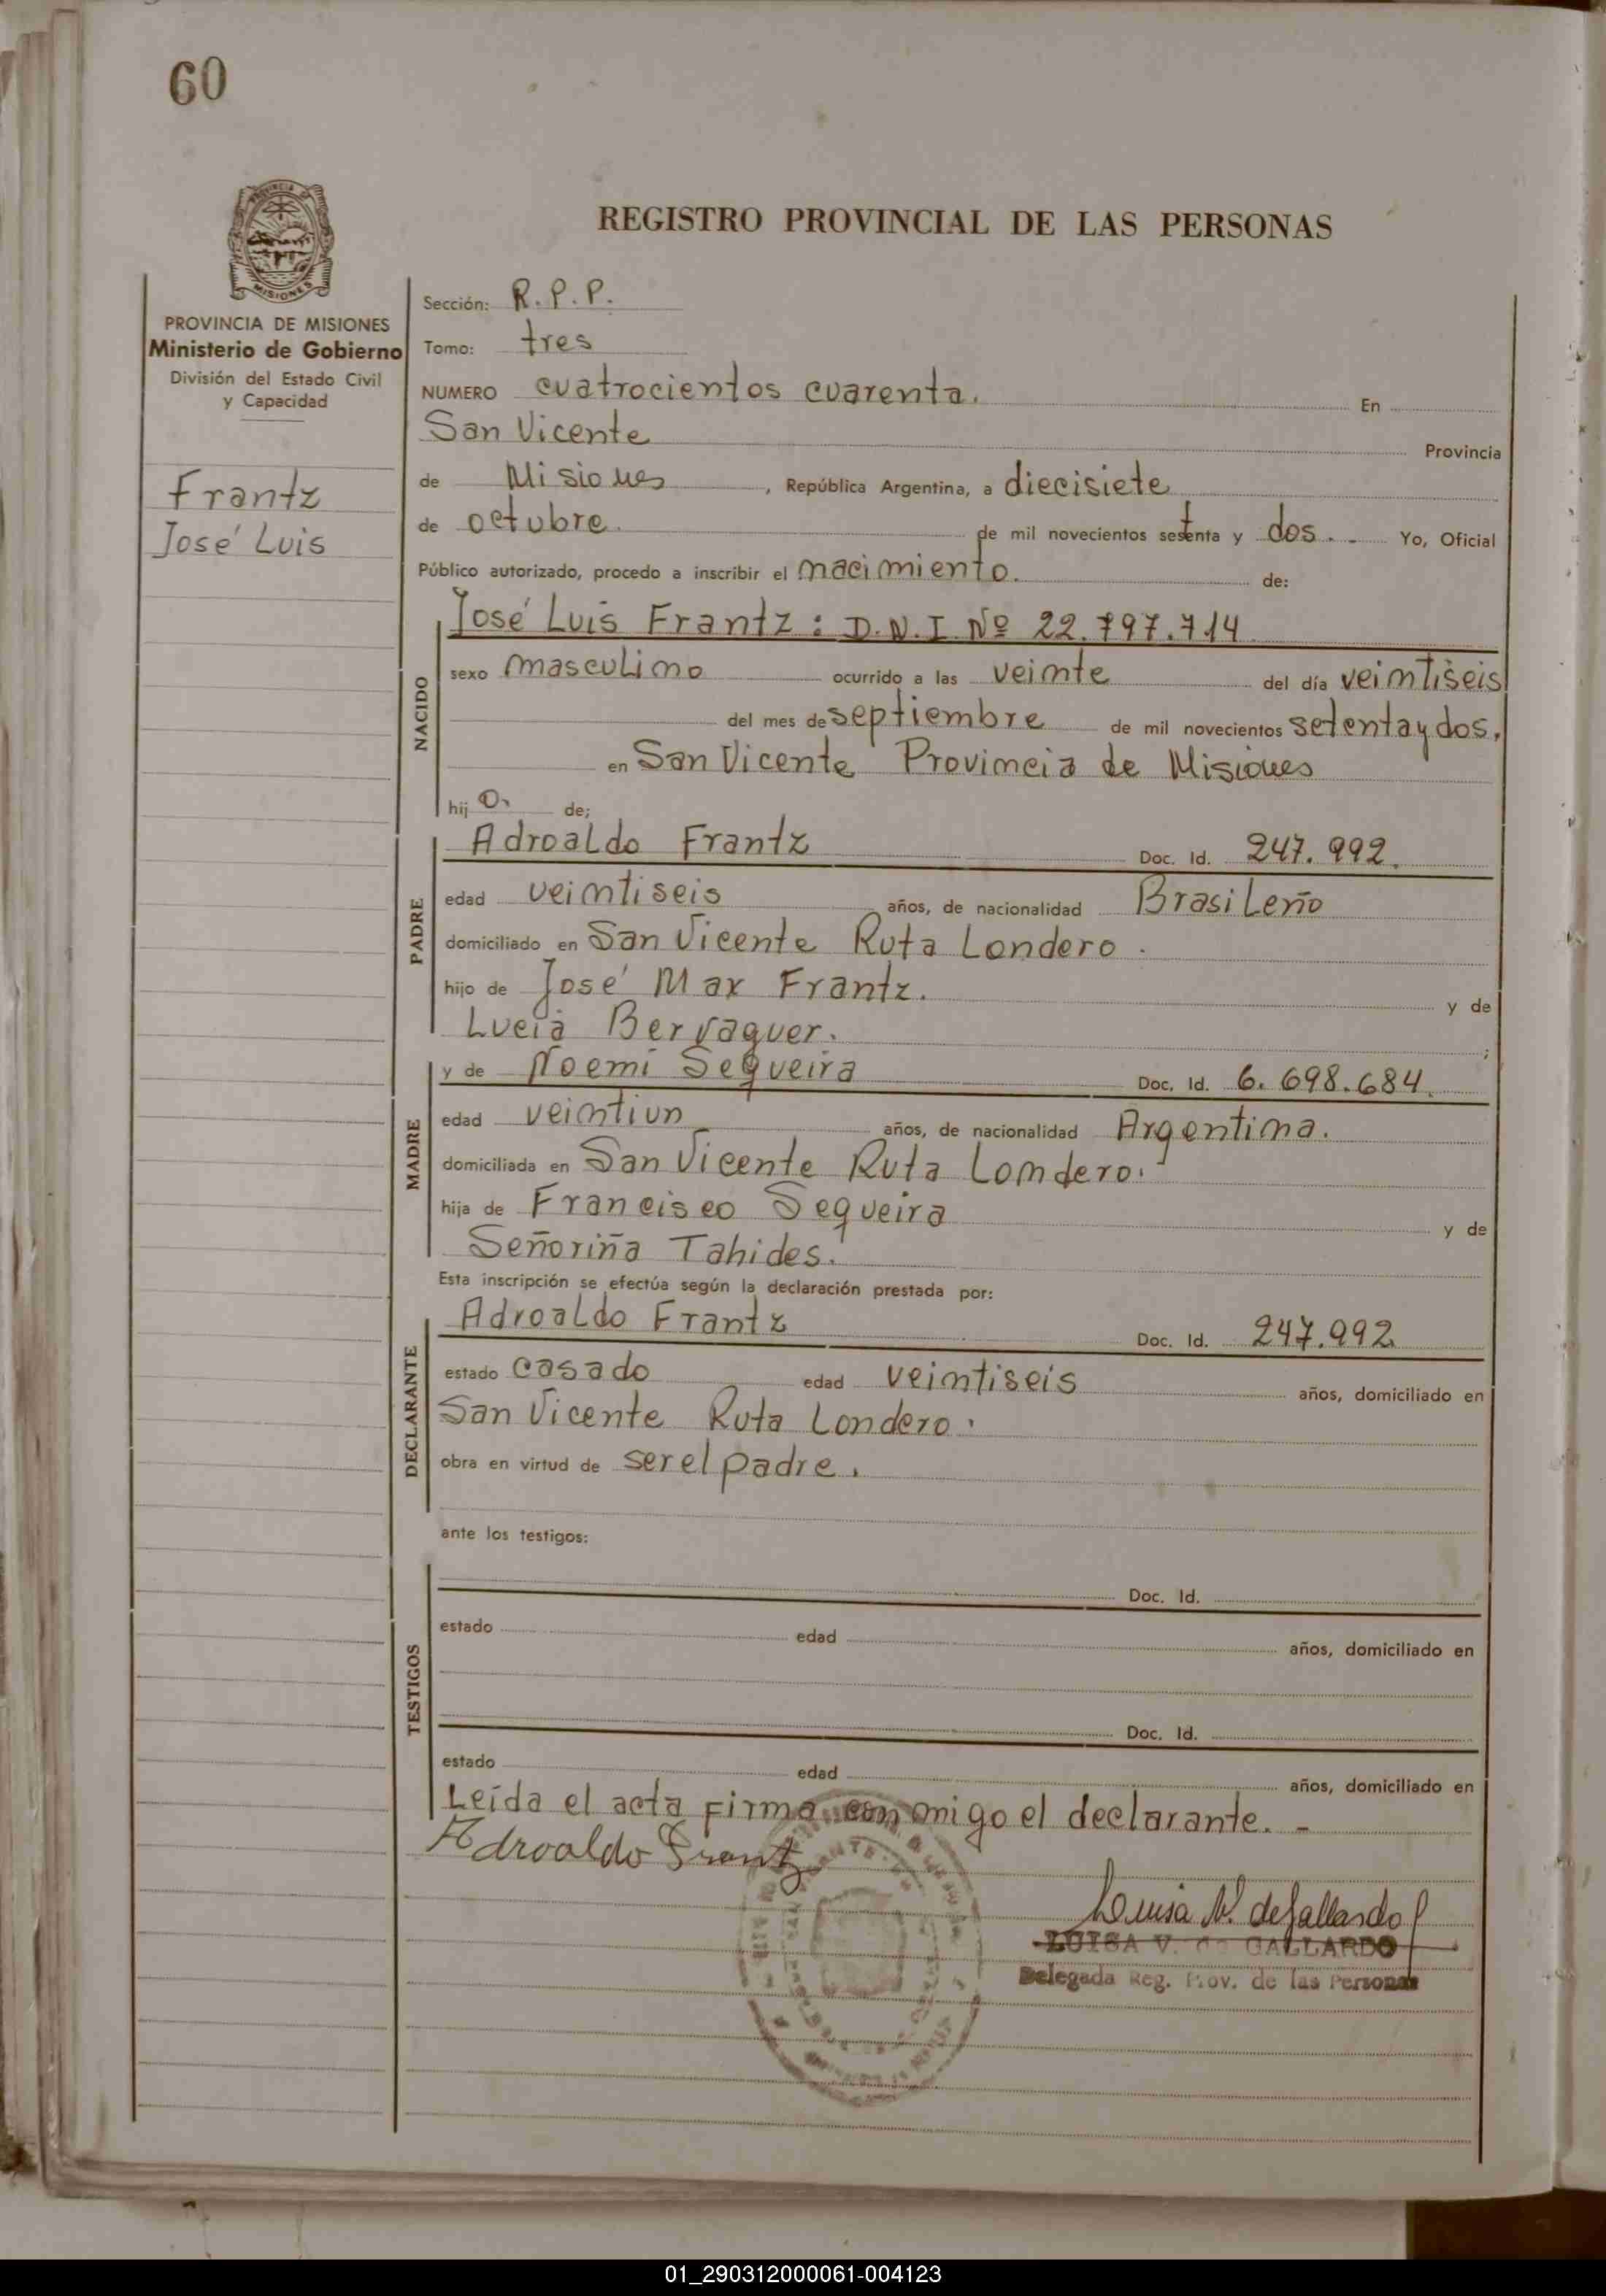 60
REGISTRO PROVINCIAL DE LAS PERSONAS
PROVINCIA DE MISIONES
Ministerio de Gobierno
División del Estado Civil
y Capacidad
Frantz
José Luis
Sección: R.P.P.
Tomo: tres
NUMERO cuatrocientos cuarenta. En
San Vicente Provincia
de Misiones, República Argentina, a diecisiete
de octubre. de mil novecientos setenta y dos. - Yo, Oficial
Público autorizado, procedo a inscribir el nacimiento. de:
NACIDO
José Luis Frantz : D.N.I Nº 22.797.714
sexo masculino ocurrido a las veinte del día veintiseis
del mes de septiembre de mil novecientos setenta y dos.
en San Vicente Provincia de Misiones
hij o. de;
PADRE
Adroaldo Frantz Doc. Id. 247.992.
edad veintiseis años, de nacionalidad Brasileño
domiciliado en San Vicente Ruta Londero.
hijo de José Max Frantz. y de
Lucia ;
MADRE
y de Noemi Sequeira Doc. Id. 6.698.684.
edad veintiun años, de nacionalidad Argentina.
domiciliada en San Vicente Ruta Londero.
hija de Francisco Sequeira y de
Señoriña Tahides.
Esta inscripción se efectúa según la declaración prestada por:
DECLARANTE
Adroaldo Frantz Doc. Id. 247.992
estado casado edad veintiseis años, domiciliado en
San Vicente Ruta Londero.
obra en virtud de ser el padre.
ante los testigos:
TESTIGOS
Doc. Id.
estado edad años, domiciliado en
Doc. Id.
estado edad años, domiciliado en
Leída el acta firma conmigo el declarante. -
Adroaldo Frantz
Luisa V. de Gallardo
LUISA V. de GALLARDO
Delegada Reg. Prov. de las Personas
01_290312000061-004123